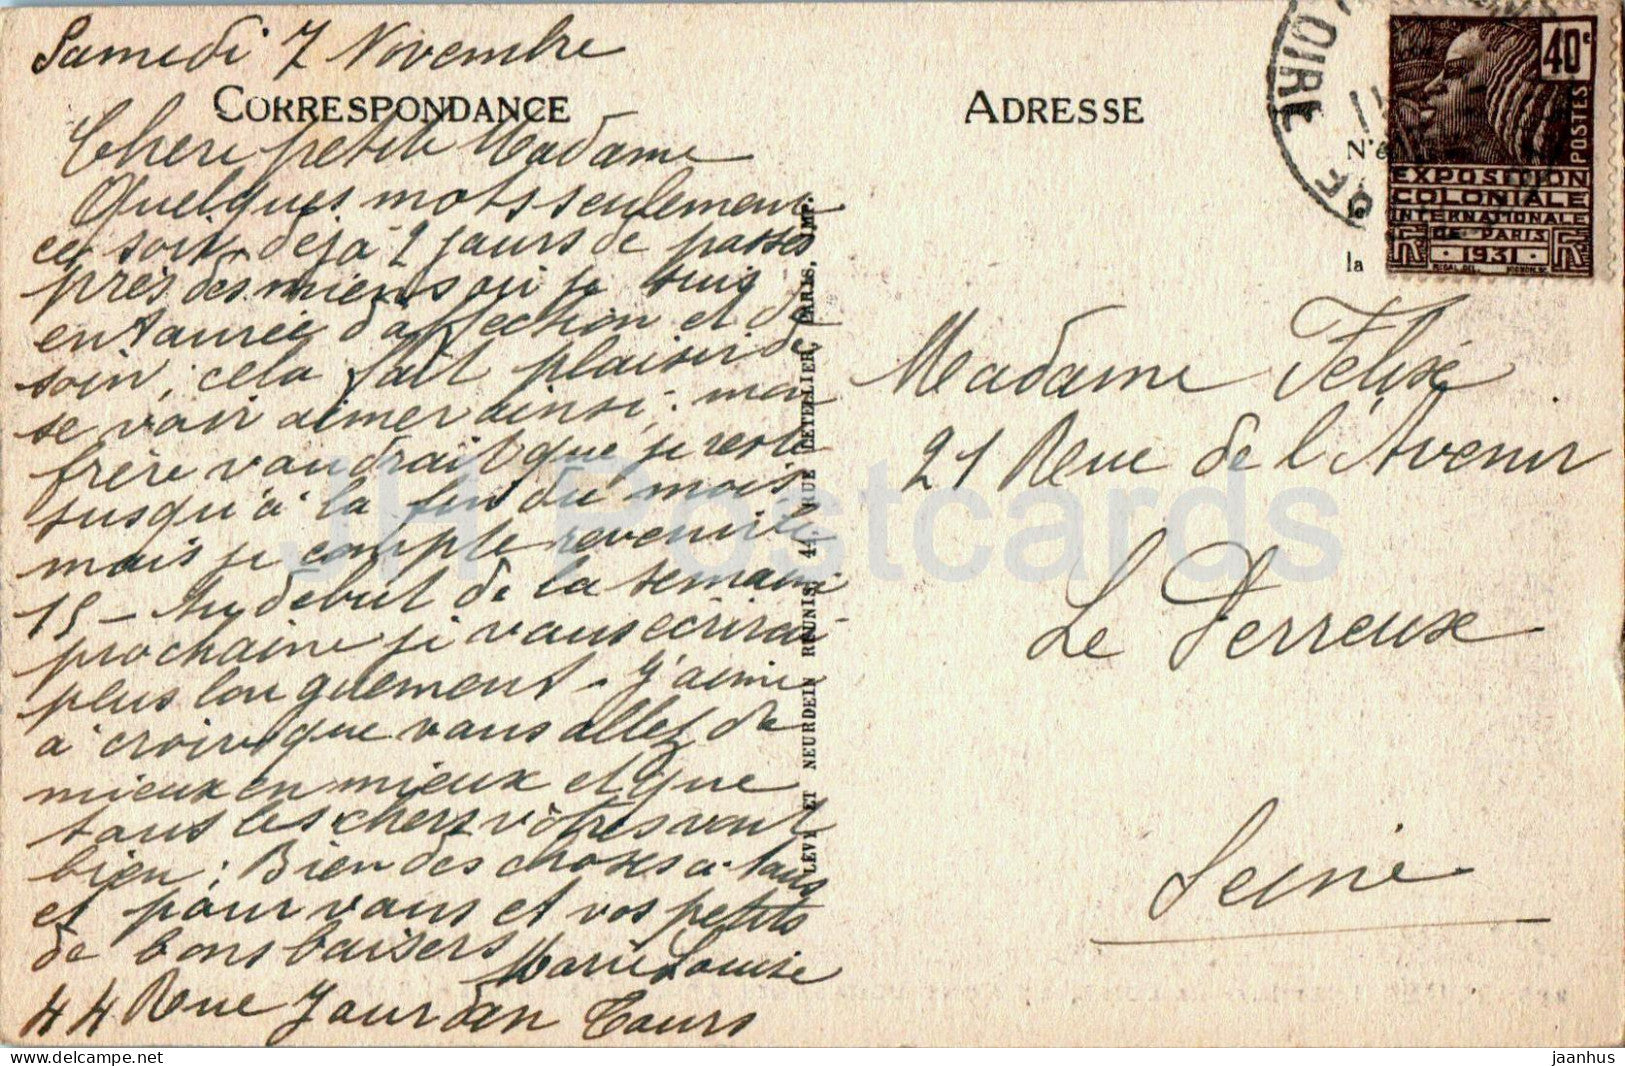 Samedi 7 Novembre
CORRESPONDANCE
Chere petite Madame
Quelques mots seulement
ce soir déjà 2 jours de passés
près des miens où je suis
entourée d'affection et de
soin ; cela fait plaisir de
se voir aimer ainsi ; mon
frère voudrait que je reste
jusqu'à la fin du mois
mais je compte revenir le
15 - Au début de la semaine
prochaine je vous écrirai
plus longuement - J'aime
à croire que vous allez de
mieux en mieux et que
tous les chers vôtres vont
bien ; Bien des choses à tous
et pour vous et vos petits
de bons baisers
Marie Louise
44 Rue Jourdan Tours
LÉVY ET NEURDEIN RÉUNIS, 44, RUE LETELLIER, PARIS, IMP.
ADRESSE
LOIRE
DE
N'é
le
la
40c
POSTES
EXPOSITION
COLONIALE
INTERNATIONALE
DE PARIS
1931
Madame Felixé
21 Rue de l'Avenir
Le Perreux
Seine
JH Postcards
jaanhus
www.delcampe.net